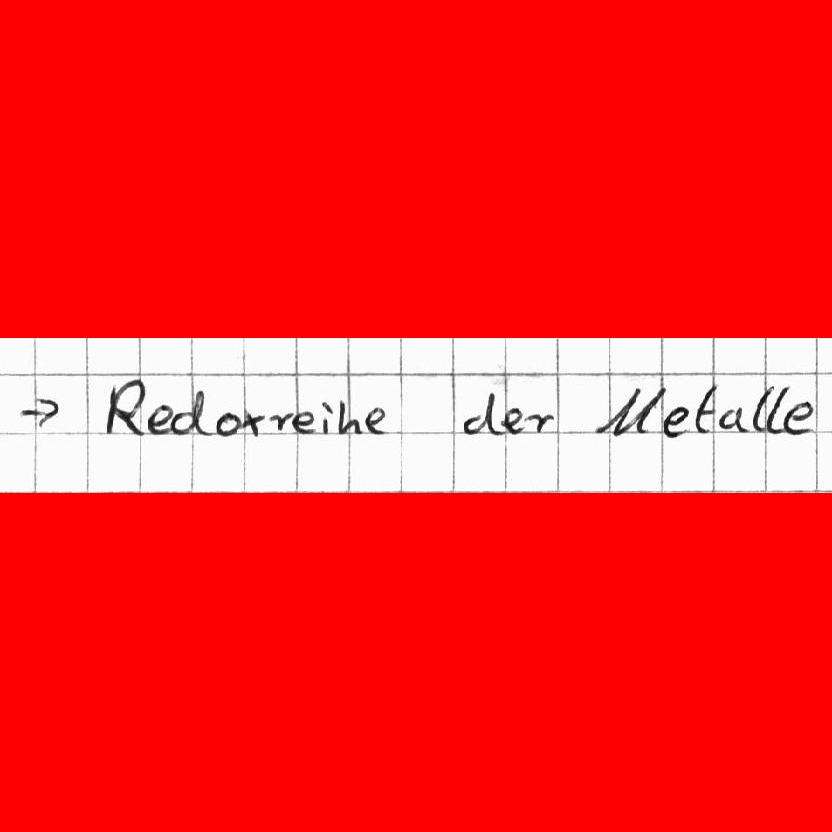 → Redoxreihe der Metalle